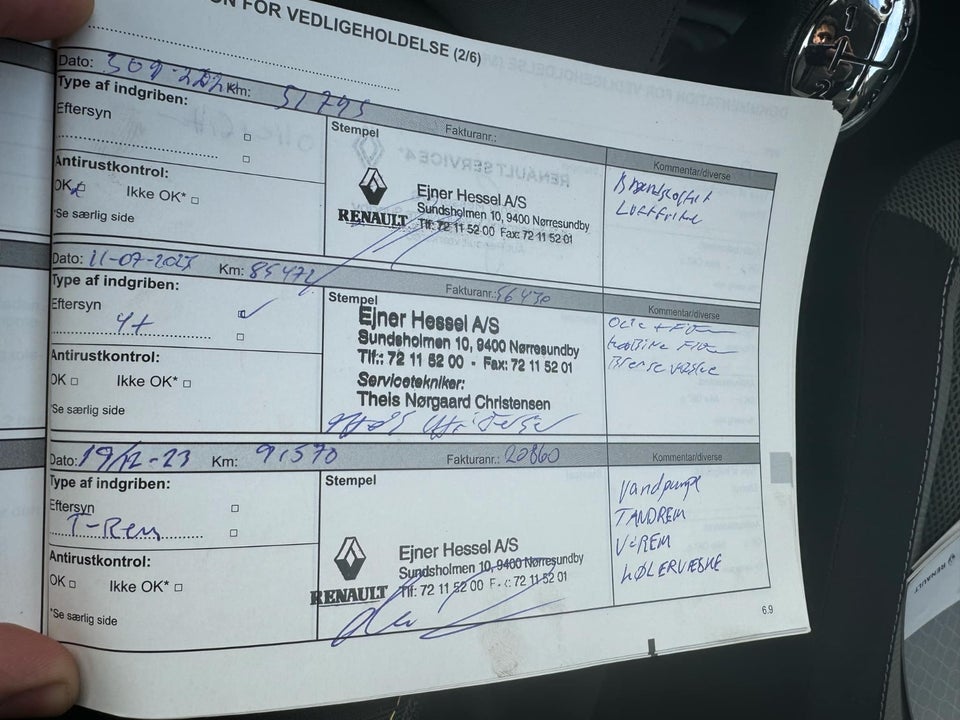 ON FOR VEDLIGEHOLDELSE (2/6)
Dato: Km: 51795
Type af indgriben:
Eftersyn
Antirustkontrol:
OK Ikke OK*
*Se særlig side
Stempel Fakturanr.:
RENAULT
Ejner Hessel A/S
Sundsholmen 10, 9400 Nørresundby
Tlf: 72 11 52 00 Fax: 72 11 52 01
Kommentar/diverse
Luftfilter
Dato: Km: 85472
Type af indgriben:
Eftersyn
Antirustkontrol:
OK Ikke OK*
*Se særlig side
Stempel Fakturanr.: 56430
Ejner Hessel A/S
Sundsholmen 10, 9400 Nørresundby
Tlf.: 72 11 52 00 - Fax: 72 11 52 01
Servicetekniker:
Theis Nørgaard Christensen
Kommentar/diverse
Dato: 19/12-23 Km: 91570
Type af indgriben:
Eftersyn
T-Rem
Antirustkontrol:
OK Ikke OK*
*Se særlig side
Stempel Fakturanr.: 20860
RENAULT
Ejner Hessel A/S
Sundsholmen 10, 9400 Nørresundby
Tlf: 72 11 52 00 Fax: 72 11 52 01
Kommentar/diverse
Vandpumpe
TANDREM
V-REM
KØLERVÆSKE
6.9